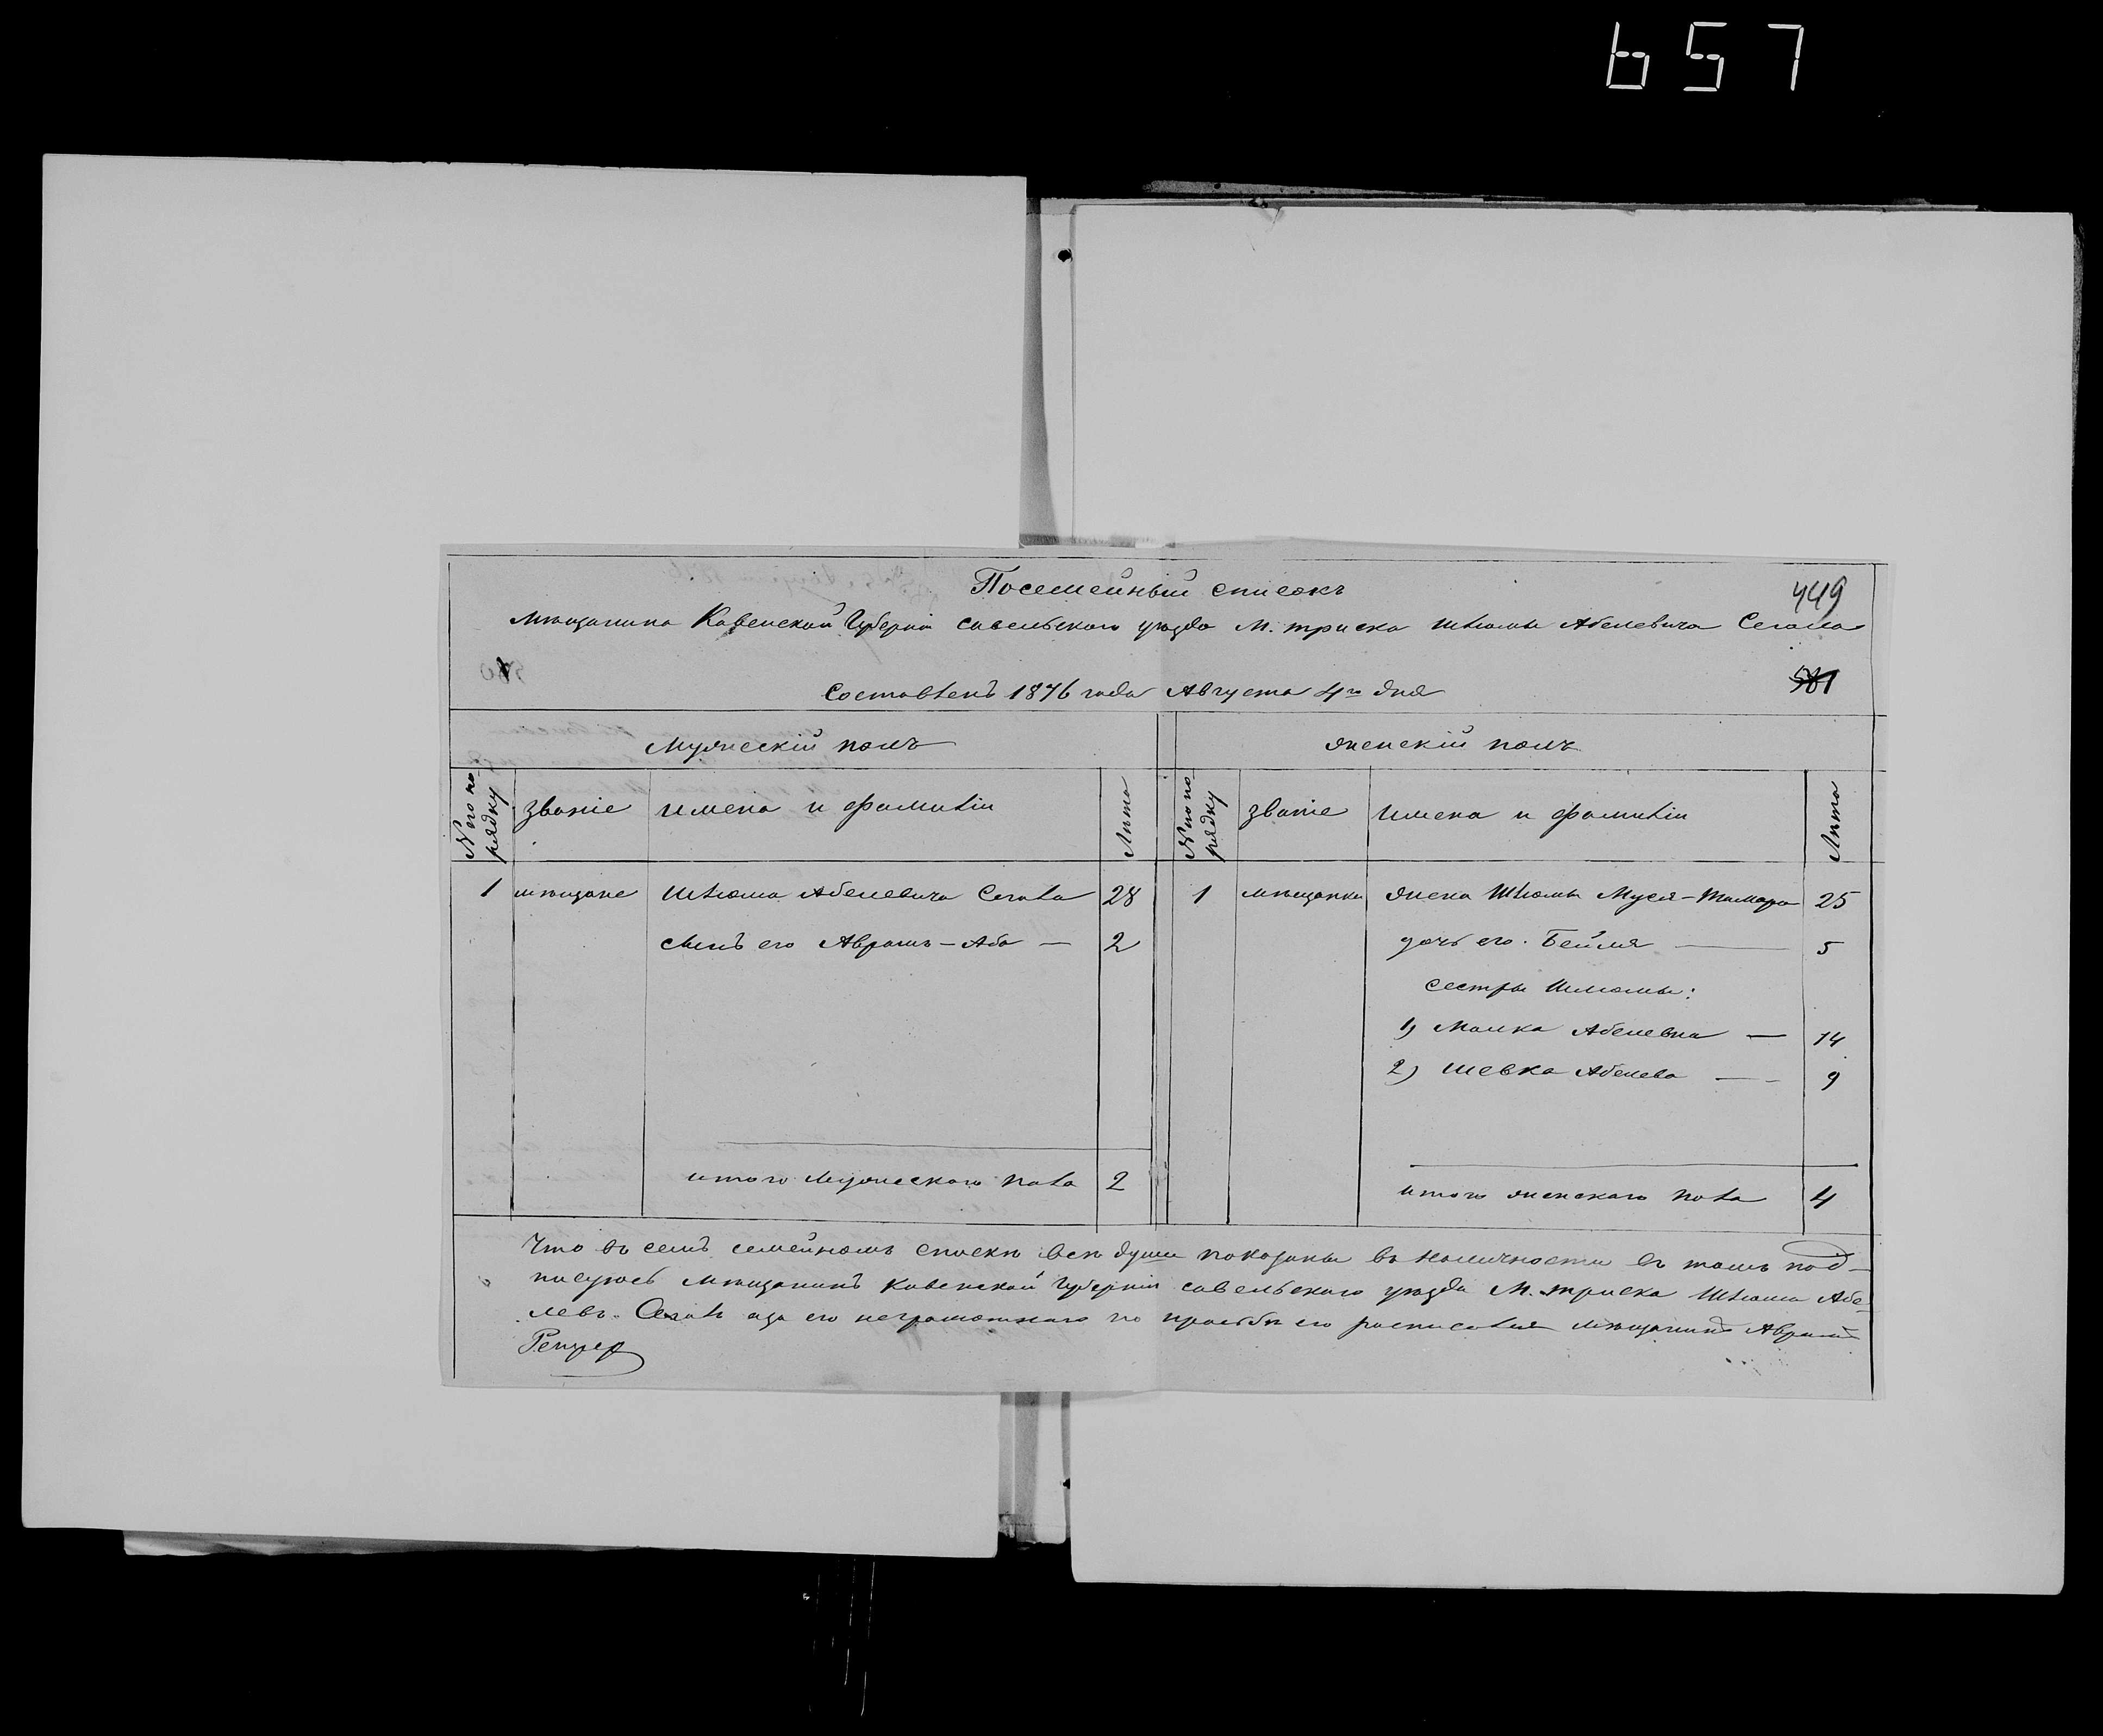 657
Посемейный списокъ
449
мѣщанина Ковенской Губерніи Савельскаго уѣзда М. Триска Шлюмы Абелевича Сегала
581
Составленъ 1876 года Августа 4го дня
Мужескій полъ
женскій полъ
№ его по-
рядку
званіе
имена и фамиліи
Лѣта
№ по по-
рядку
званіе
имена и фамиліи
Лѣта
1 мѣщане Шлюма Абелевича Сегала 28
1 мѣщанки жена Шлюмы Муся-Тамара 25
сынъ его Абрамъ-Аба — 2
дочь его Бейля — 5
сестры Шлюмы:
1) Малка Абелевна — 14
2) Шевка Абелева — 9
итого Мужескаго пола 2
итого женскаго пола 4
Что въ семъ семейномъ спискѣ всѣ души показаны въ наличности въ томъ под-
писуюсь мѣщанинъ Ковенской Губерніи Савельскаго уѣзда М. Триска Шлюма Абе-
левъ Сегалъ а за его неграмотнаго по просьбѣ его росписался мѣщанинъ Абрамъ